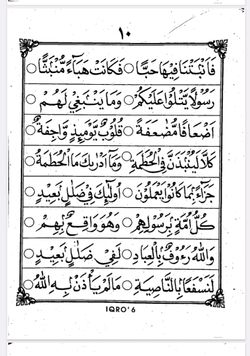 ١٠
فَاَنْۢبَتْنَا فِيْهَا حَبًّا ○ فَكَانَتْ هَبَآءً مُّنْۢبَثًّا ○
رَسُوْلًا يَّتْلُوْا عَلَيْكُمْ ○ وَمَا يَنْۢبَغِيْ لَهُمْ ○
اَضْعَافًا مُّضٰعَفَةً ○ قُلُوْبٌ يَّوْمَئِذٍ وَّاجِفَةٌ ○
كَلَّا لَيُنْۢبَذَنَّ فِى الْحُطَمَةِ ○ وَمَآ اَدْرٰىكَ مَا الْحُطَمَةُ ○
جَزَآءً بِمَا كَانُوْا يَعْمَلُوْنَ ○ اُولٰٓئِكَ فِيْ ضَلٰلٍۢ بَعِيْدٍ ○
كُلُّ اُمَّةٍۢ بِرَسُوْلِهِمْ ○ وَهُوَ وَاقِعٌۢ بِهِمْ ○
وَاللّٰهُ رَءُوْفٌۢ بِالْعِبَادِ ○ لَفِيْ ضَلٰلٍۢ بَعِيْدٍ ○
لَنَسْفَعًۢا بِالنَّاصِيَةِ ○ مَا لَمْ يَأْذَنْۢ بِهِ اللّٰهُ ○
IQRO'6